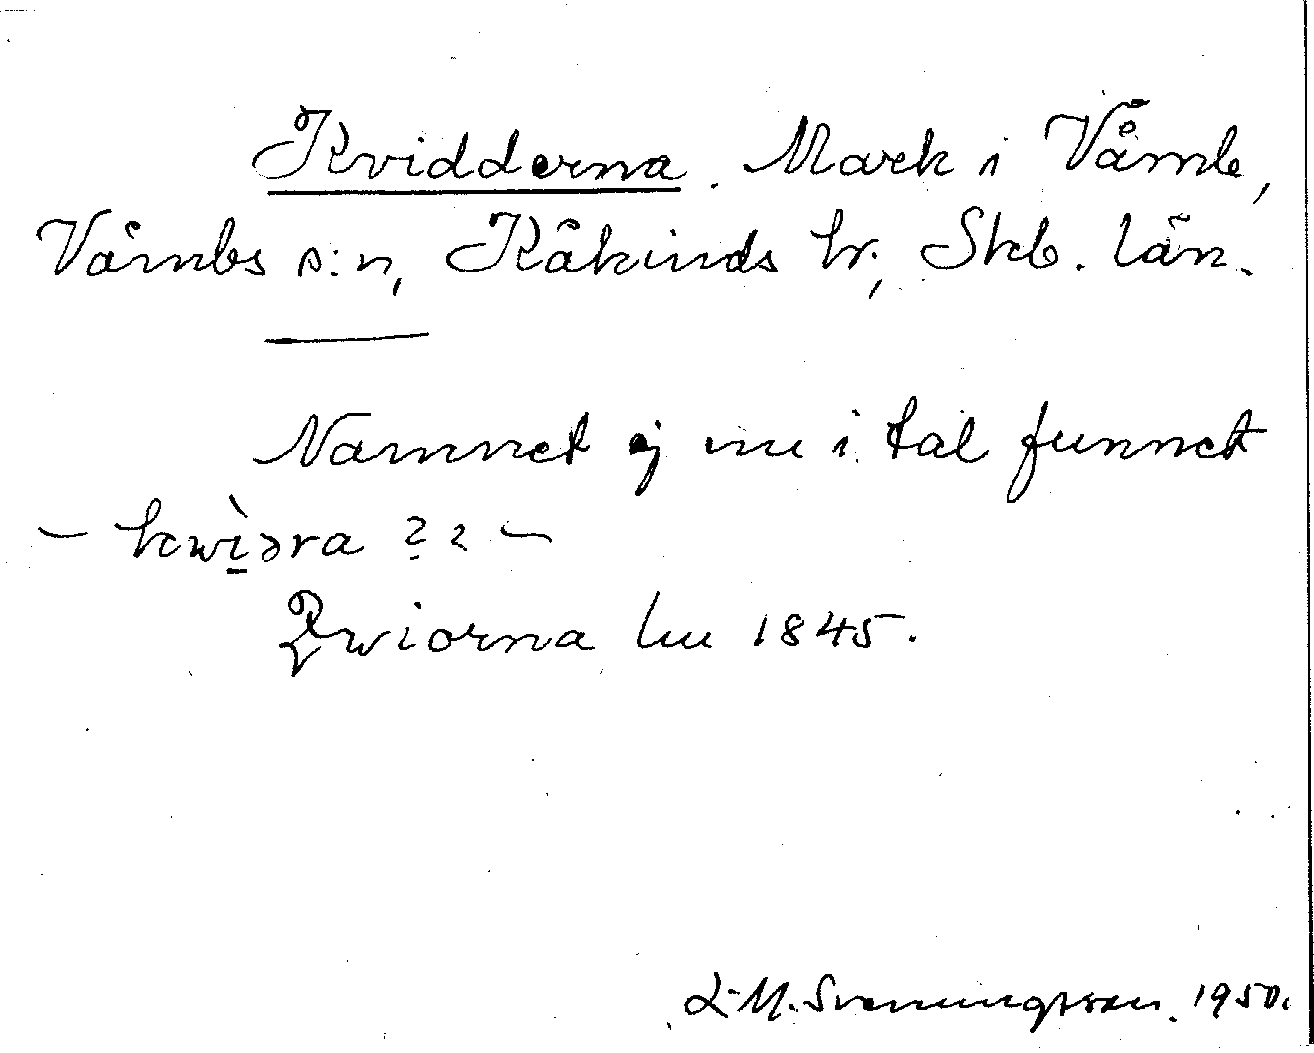 Kvidderna. Mark i Våmb,
Våmbs s:n, Kåkinds hr, Skb. län.
Namnet ej nu i tal funnet
– kwìəra ?? –
Qwiorna lm 1845.
L-M. Svenungsson. 1950.